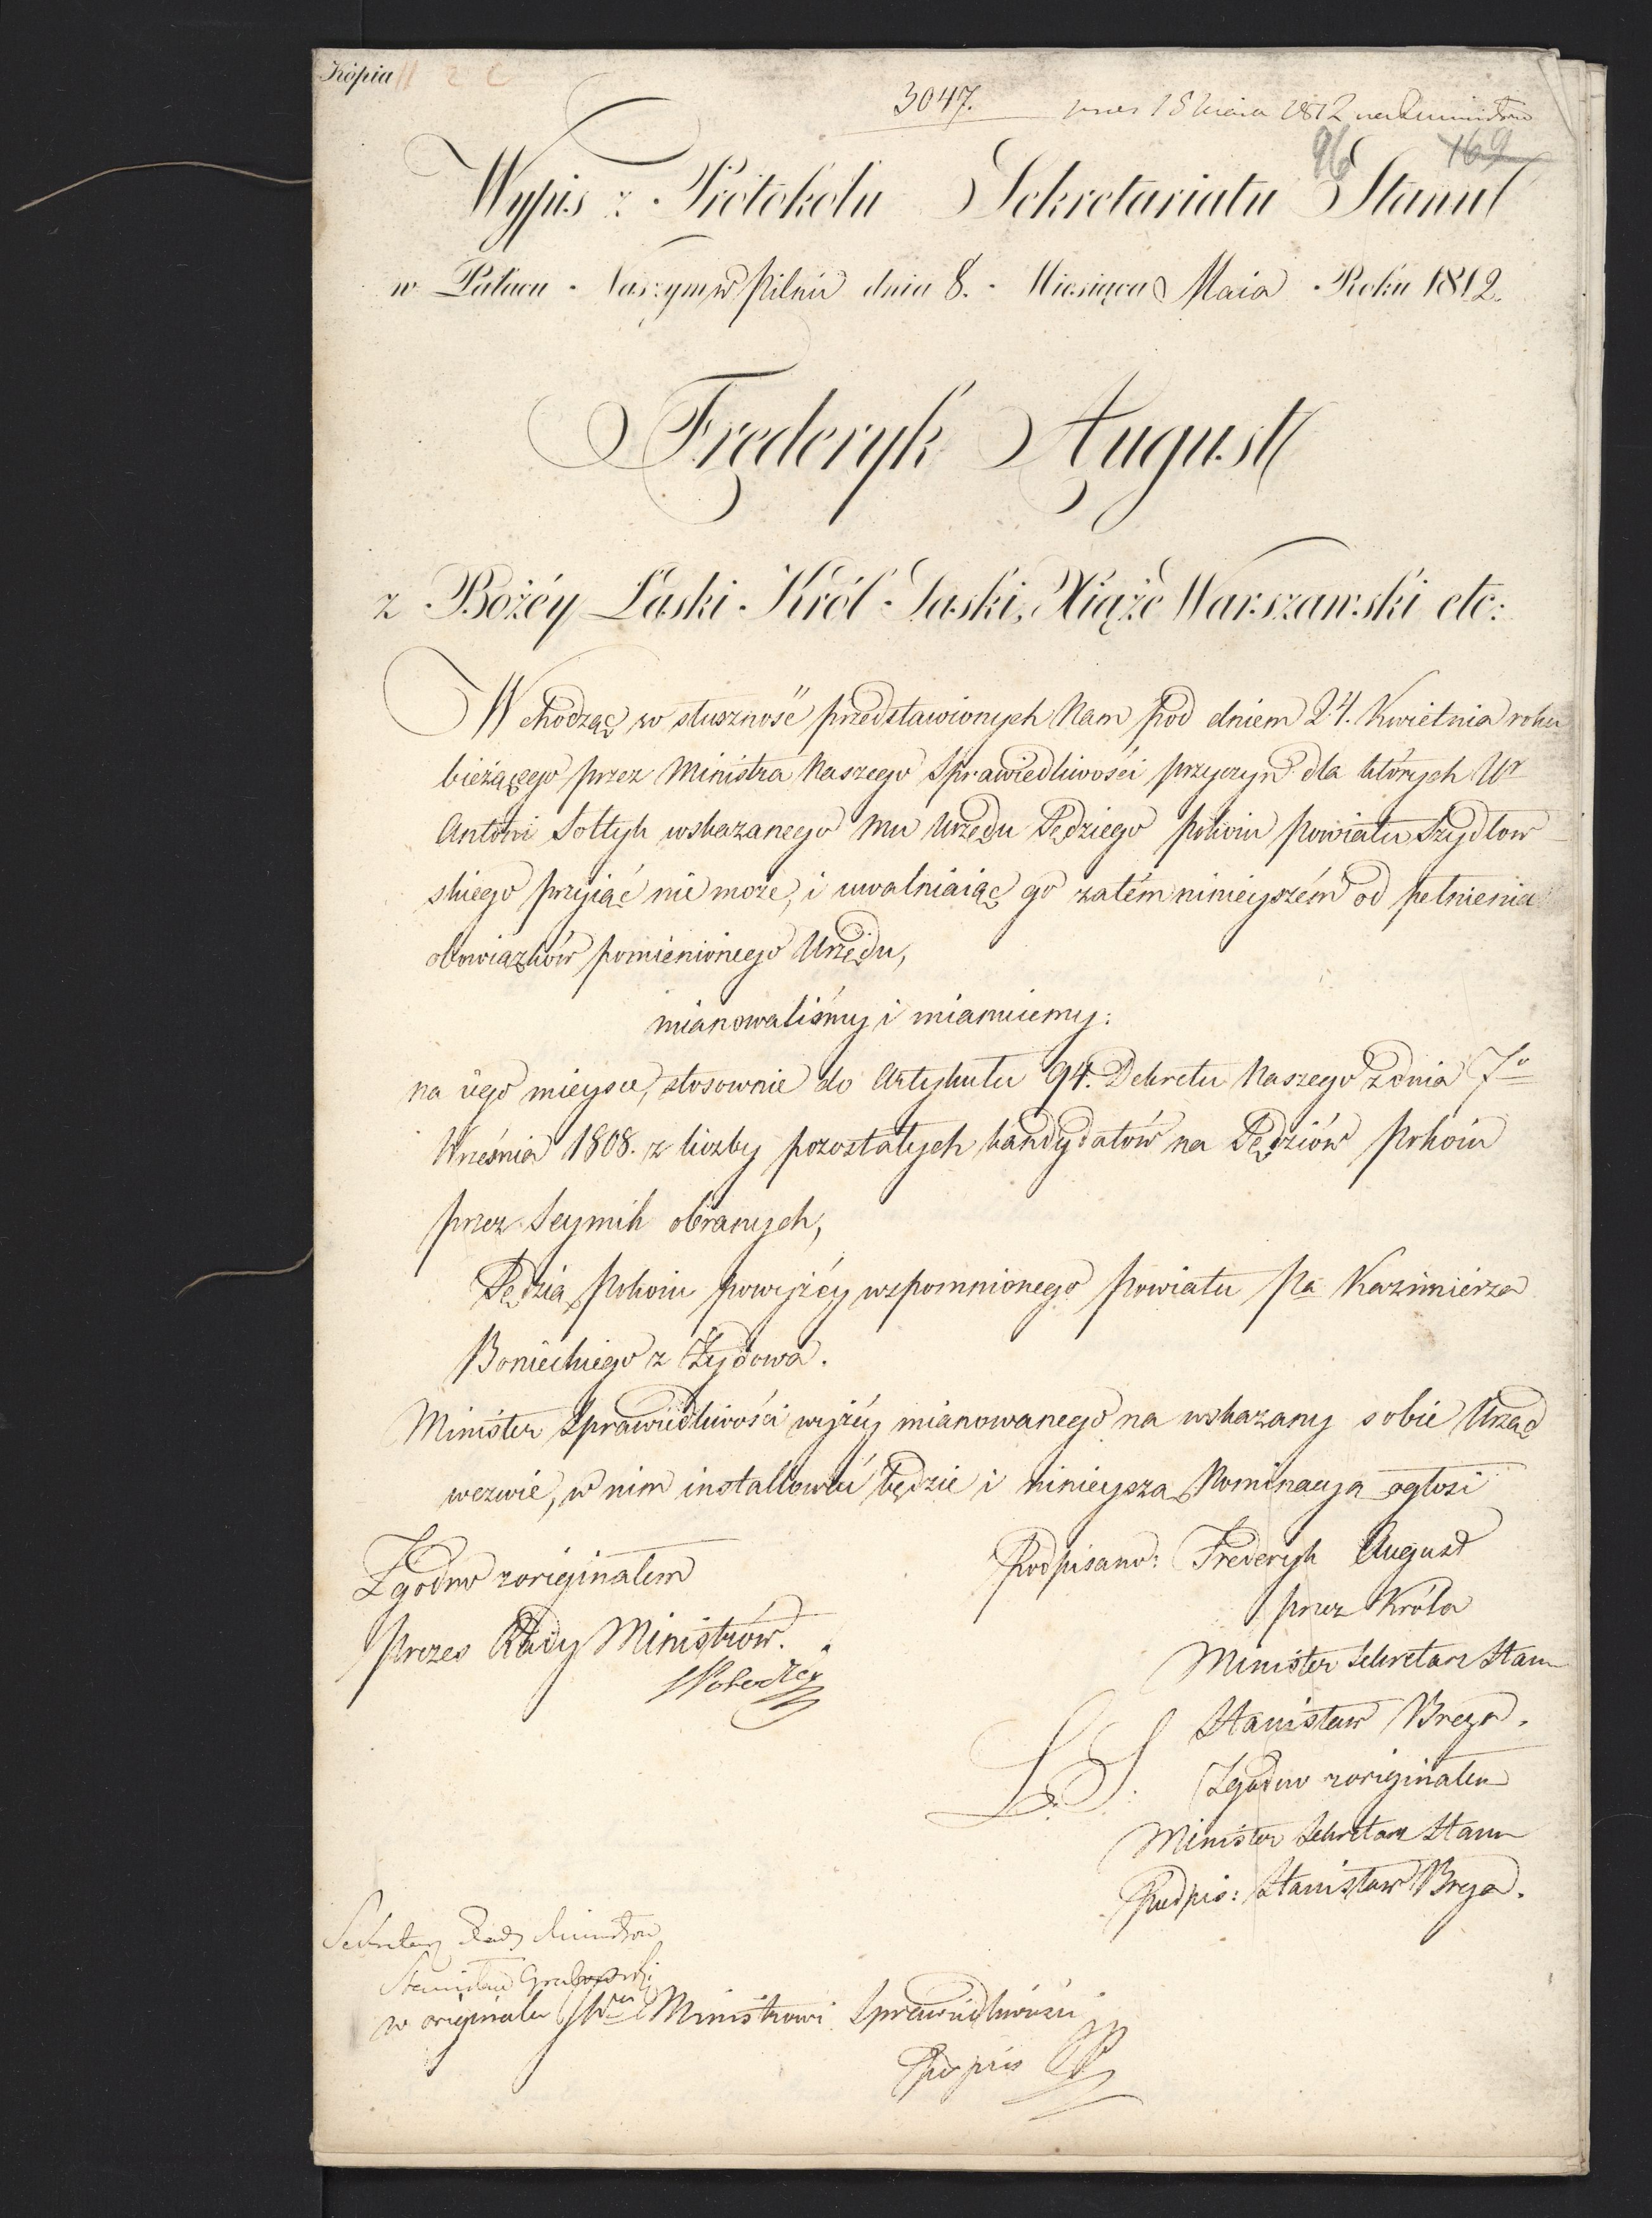 Kópia
3047.
15 Maia 1812
96 169
Wypis z Protokołu Sekretariatu Stanu
w Pałacu Naszym w Pilnic dnia 8. Miesiąca Maia Roku 1812.
Frederyk August
z Bożéy Łaski Król Saski, Xiąże Warszawski etc:
Wchodząc w słuszność przedstawionych Nam pod dniem 24. Kwietnia roku
bieżącego przez Ministra Naszego Sprawiedliwości przyczyn dla których Ur
Antoni Sołtyk wskazanego mu Urzędu Sędziego pokoiu Powiatu Szydłow
skiego przyiąć nie może, i uwalniaiąc go zatém ninieyszém od pełnienia
obowiązków pomienionego Urzędu,
mianowaliśmy i mianuiemy:
na iego mieysce, stosownie do Artykułu 94. Dekretu Naszego z dnia 7o
Września 1808. z liczby pozostałych kandydatów na Sędziów Pokoiu
przez Seymik obranych,
Sędzią Pokoiu powyżéy wspomnionego Powiatu Pa Kazimierza
Bonieckiego z Żydowa.
Minister Sprawiedliwości wyżéy mianowanego na wskazany sobie Urząd
wezwie, w nim installować będzie i ninieyszą Nominacyą ogłosi
Zgodno z originałem
Prezes Rady Ministrów.
Podpisano: Frederyk August
przez Króla
Minister Sekretarz Stanu
Stanisław Breza.
L.S. Zgodno z originałem
Minister Sekretarz Stanu
Podpis: Stanisław Breza.
Sekretarz Rady Ministrow
Stanisław Grabowski
w originale JWu Ministrowi Sprawiedliwości
Podpis